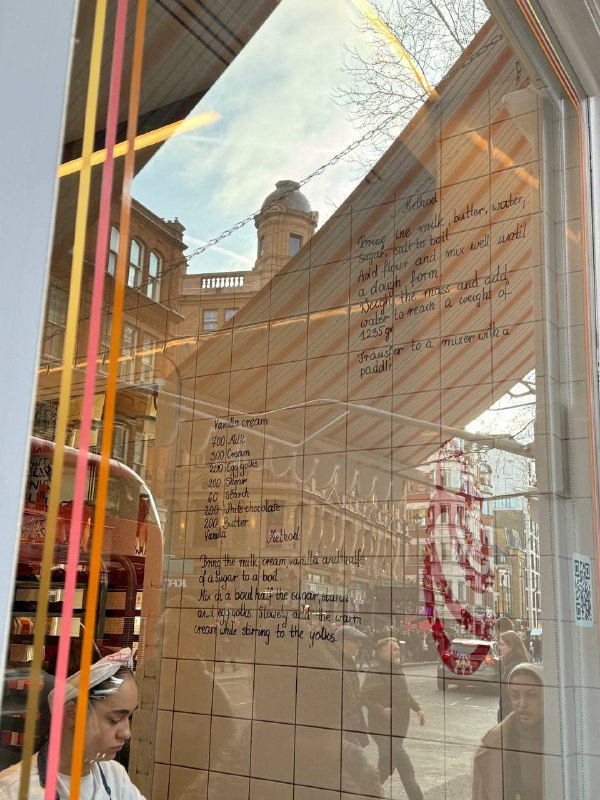 Method
Bring the milk, butter, water,
sugar, salt to boil
Add flour and mix well until
a dough form
Weigh the mass and add
water to reach a weight of
1235 gr
Transfer to a mixer with a
paddle
Vanilla cream
700 Milk
300 Cream
Egg yolks
200 Sugar
60 Starch
White chocolate
200 Butter
Vanilla
Method
Bring the milk, cream vanilla and half
of a sugar to a boil
Mix in a bowl half the sugar, starch
and egg yolks. Slowly add the warm
cream while stirring to the yolks.